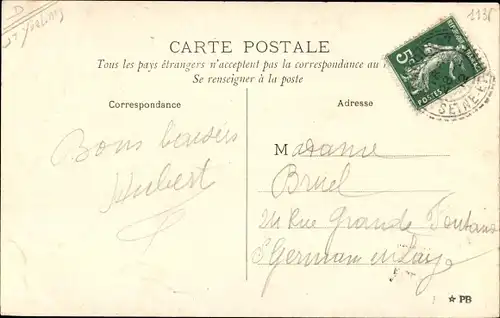 D
1135
CARTE POSTALE
Tous les pays étrangers n'acceptent pas la correspondance au
Se renseigner à la poste
5c
POSTES
SEINE-ET
Correspondance
Adresse
Bons baisers
Hubert
Madame
Bruel
24 Rue Grande Fontaine
St Germain en Laye
☆ PB